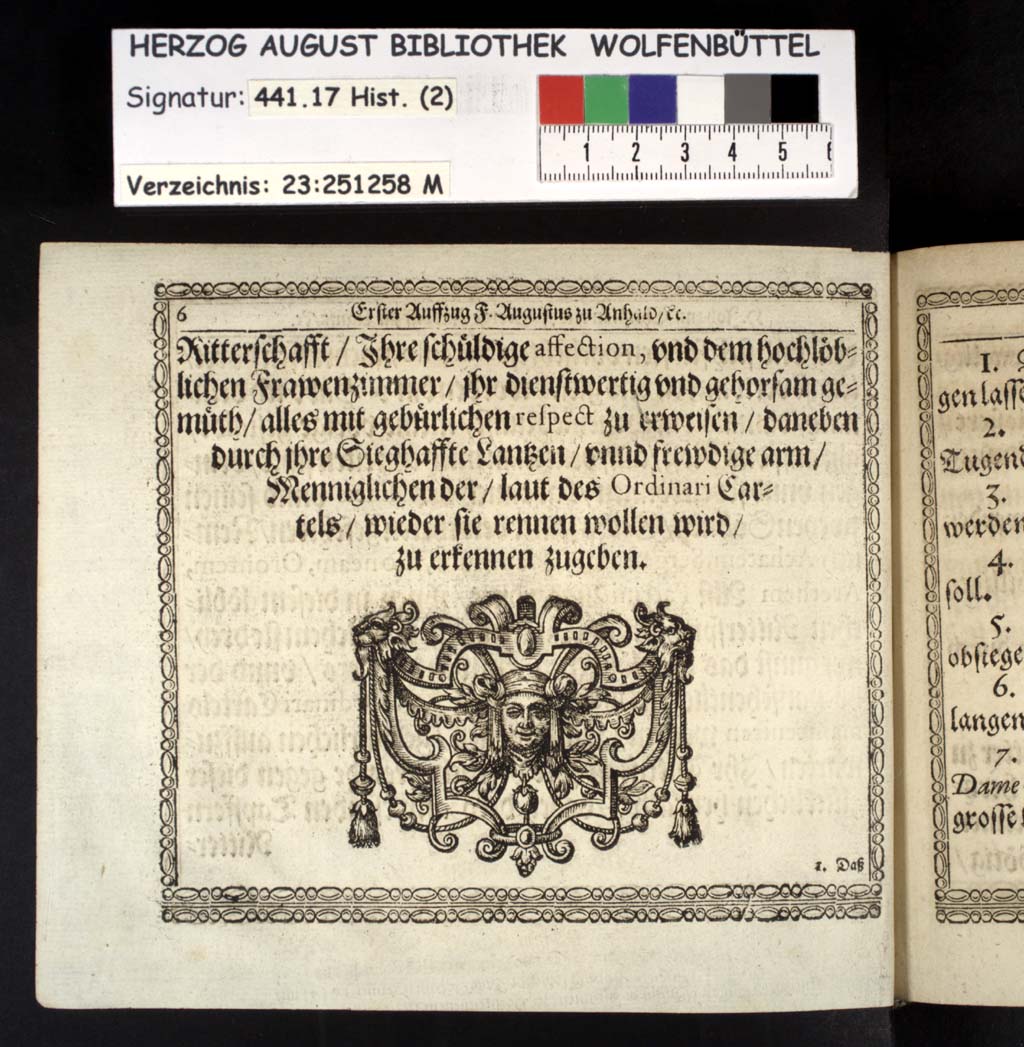 HERZOG AUGUST BIBLIOTHEK WOLFENBÜTTEL
Signatur: 441.17 Hist. (2)
Verzeichnis: 23:251258 M
1 2 3 4 5 6
6 Erster Auffzug F. Augustus zu Anhald/ ꝛc.
Ritterschafft / Ihre schüldige affection, vnd dem hochlöb⸗
lichen Frawenzimmer / jhr dienstwertig vnd gehorsam ge⸗
müth / alles mit gebürlichen respect zu erweisen / daneben
durch jhre Sieghaffte Lantzen / vnnd frewdige arm /
Menniglichen der / laut des Ordinari Car⸗
tels / wieder sie rennen wollen wird /
zu erkennen zugeben.
1. Daß
1.
gen lasse
2.
Tugend
3.
werden
4.
soll.
5.
obsiege
6.
langen
7.
Dame
grosse